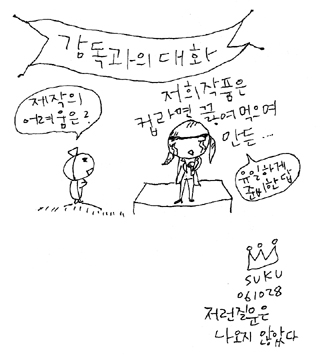 감독과의 대화
제작의
어려움은?
저희 작품은
컵라면 끓여먹으며
만든...
유일하게
준비한 답
SUKU
061028
저런질문은
나오지 않았다